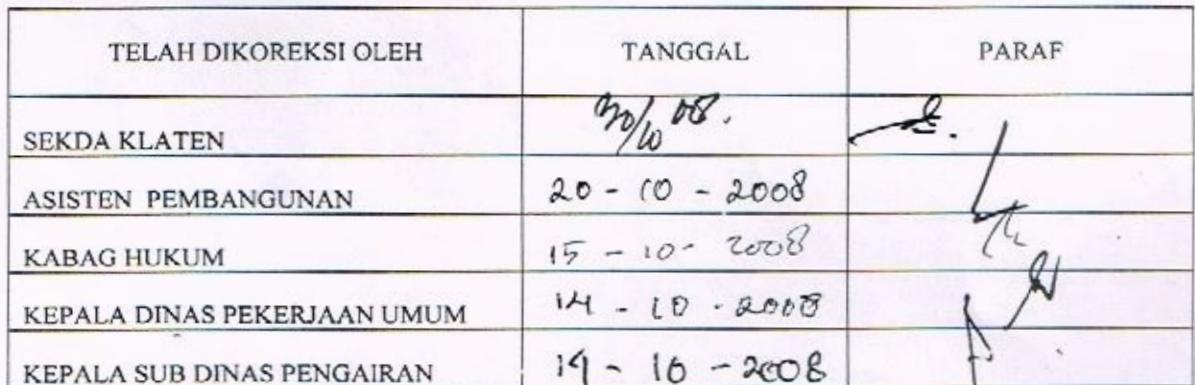 TELAH DIKOREKSI OLEH TANGGAL PARAF
SEKDA KLATEN 30/10 08.
ASISTEN PEMBANGUNAN 20 - 10 - 2008
KABAG HUKUM 15 - 10 - 2008
KEPALA DINAS PEKERJAAN UMUM 14 - 10 - 2008
KEPALA SUB DINAS PENGAIRAN 14 - 10 - 2008